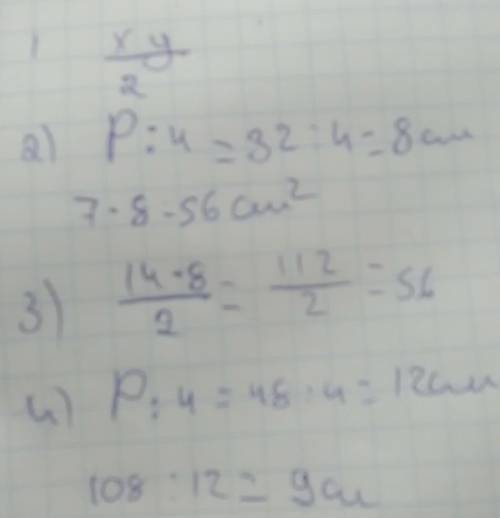 1 xy/2
2) P:4=32:4=8см
7·8=56см²
3) 14·8/2=112/2=56
4) P:4=48:4=12см
108:12=9см